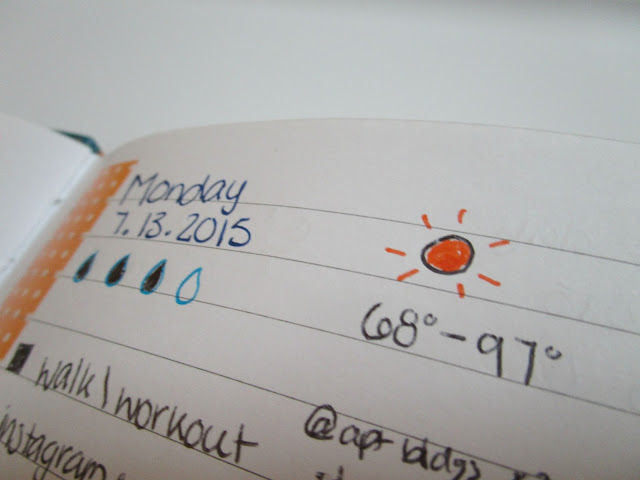 Monday
7.13.2015
68°-97°
walk/workout
@apt bldgs
instagram